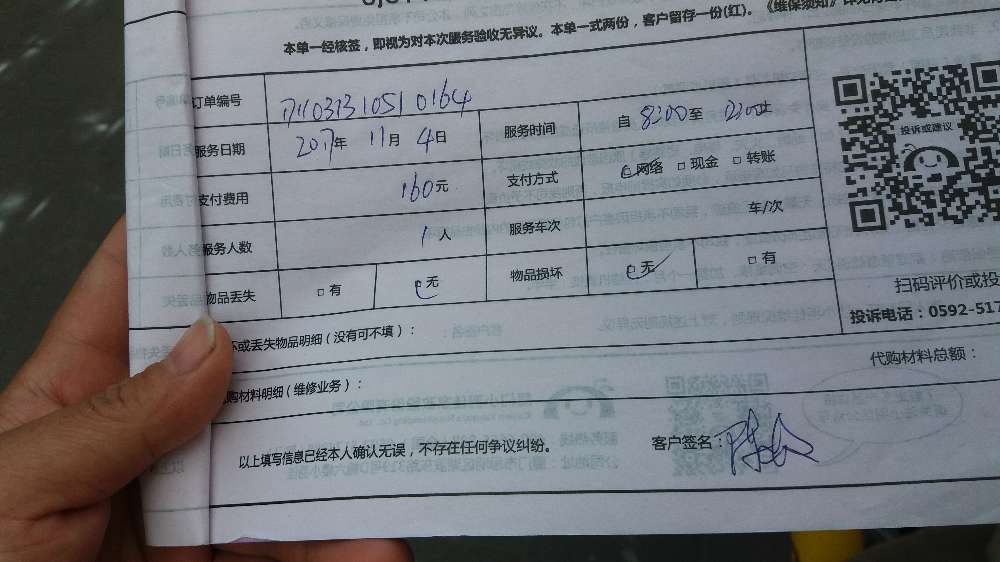 本单一经核签，即视为对本次服务验收无异议。本单一式两份，客户留存一份(红)。《维保须知》
订单编号
服务日期 2017年 11月 4日 服务时间 自 8:00至 12:00止
支付费用 160元 支付方式 网络 □ 现金 □ 转账
服务人数 1 人 服务车次 车/次
物品丢失 □ 有 无 物品损坏 无 □ 有
投诉或建议
扫码评价或投
投诉电话：0592-517
坏或丢失物品明细（没有可不填）：
代购材料总额：
购材料明细（维修业务）：
以上填写信息已经本人确认无误，不存在任何争议纠纷。
客户签名：